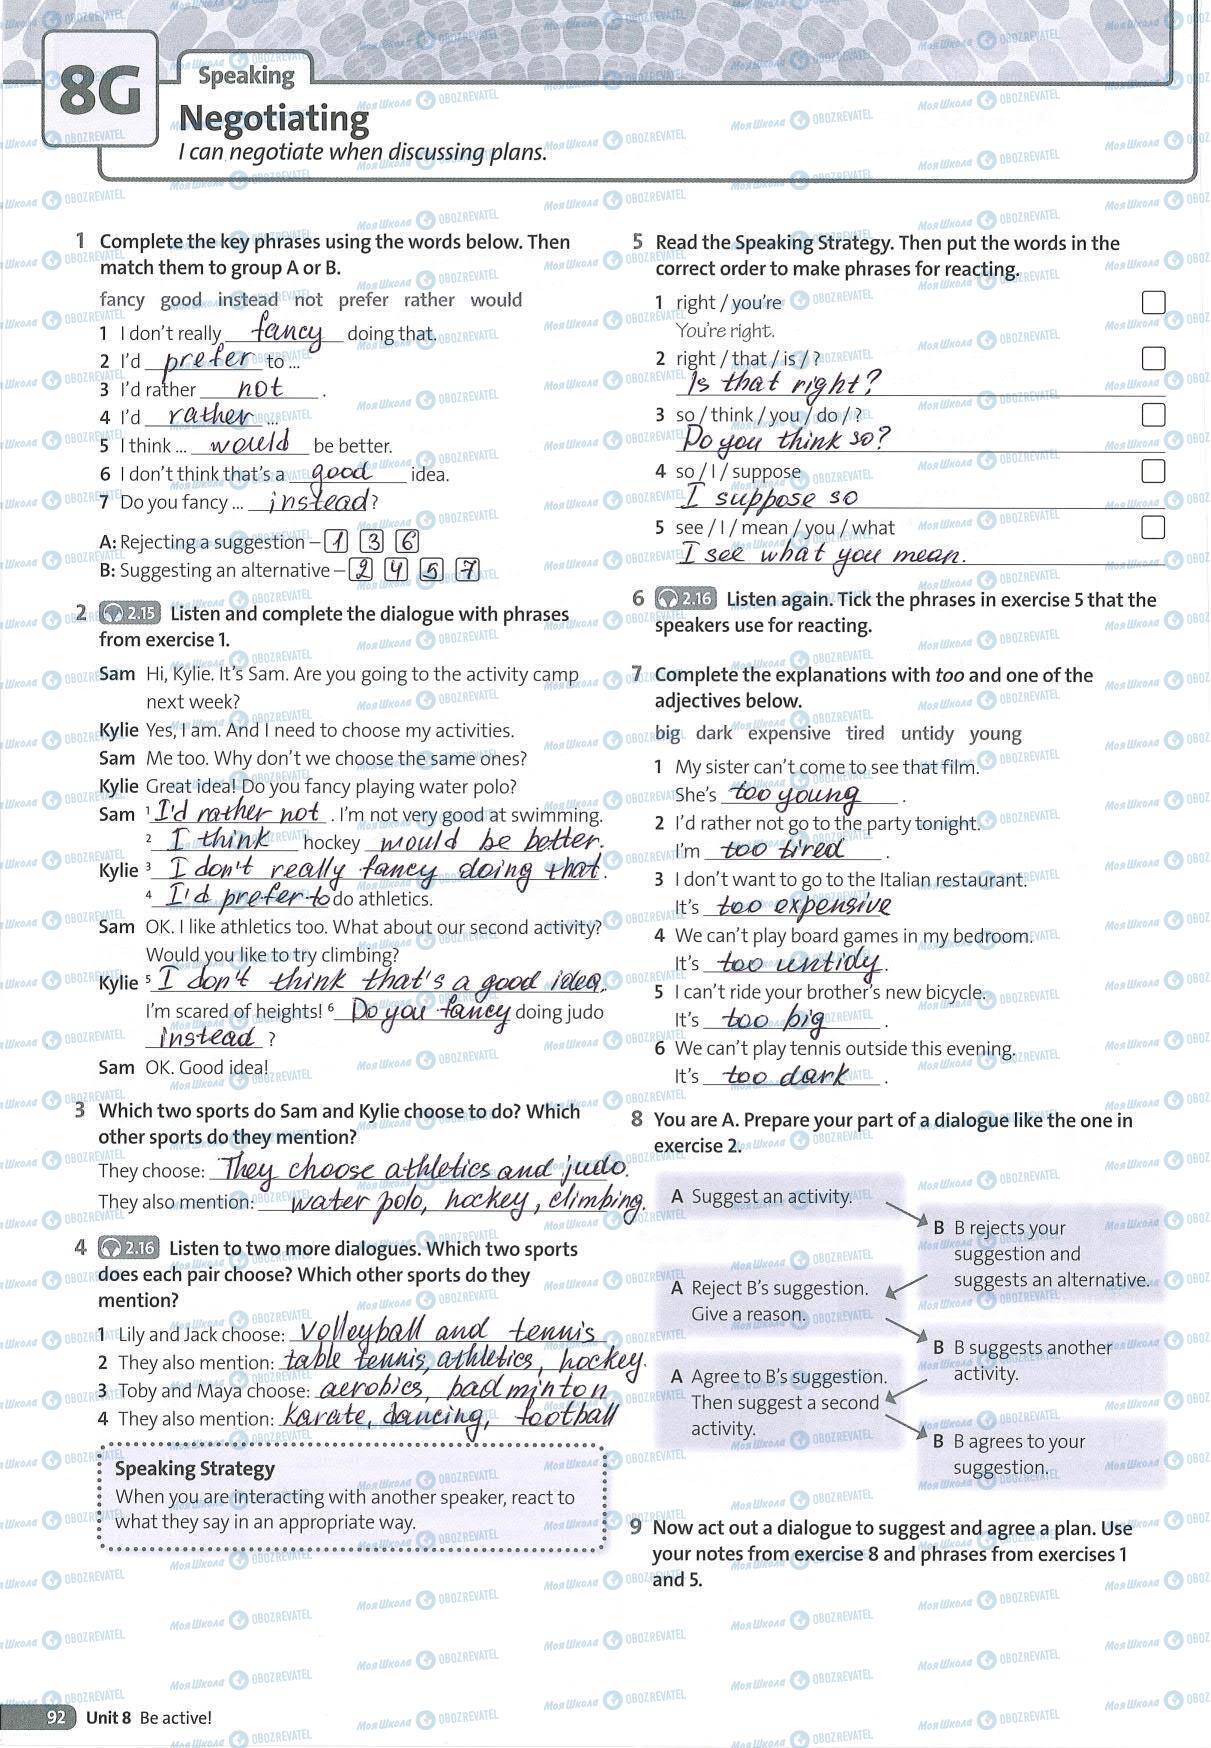 8G
Speaking
Negotiating
I can negotiate when discussing plans.
1 Complete the key phrases using the words below. Then
match them to group A or B.
fancy good instead not prefer rather would
1 I don't really fancy doing that.
2 I'd prefer to ...
3 I'd rather not .
4 I'd rather ...
5 I think ... would be better.
6 I don't think that's a good idea.
7 Do you fancy ... instead?
A: Rejecting a suggestion – 1 3 6
B: Suggesting an alternative – 2 4 5 7
2 2.15 Listen and complete the dialogue with phrases
from exercise 1.
Sam Hi, Kylie. It's Sam. Are you going to the activity camp
next week?
Kylie Yes, I am. And I need to choose my activities.
Sam Me too. Why don't we choose the same ones?
Kylie Great idea! Do you fancy playing water polo?
Sam 1 I'd rather not . I'm not very good at swimming.
2 I think hockey would be better.
Kylie 3 I don't really fancy doing that.
4 I'd prefer to do athletics.
Sam OK. I like athletics too. What about our second activity?
Would you like to try climbing?
Kylie 5 I don't think that's a good idea.
I'm scared of heights! 6 Do you fancy doing judo
instead ?
Sam OK. Good idea!
3 Which two sports do Sam and Kylie choose to do? Which
other sports do they mention?
They choose: They choose athletics and judo.
They also mention: water polo, hockey, climbing.
4 2.16 Listen to two more dialogues. Which two sports
does each pair choose? Which other sports do they
mention?
1 Lily and Jack choose: volleyball and tennis
2 They also mention: table tennis, athletics, hockey.
3 Toby and Maya choose: aerobics, badminton
4 They also mention: karate, dancing, football
Speaking Strategy
When you are interacting with another speaker, react to
what they say in an appropriate way.
5 Read the Speaking Strategy. Then put the words in the
correct order to make phrases for reacting.
1 right / you're
You're right.
2 right / that / is / ?
Is that right?
3 so / think / you / do / ?
Do you think so?
4 so / I / suppose
I suppose so
5 see / I / mean / you / what
I see what you mean.
6 2.16 Listen again. Tick the phrases in exercise 5 that the
speakers use for reacting.
7 Complete the explanations with too and one of the
adjectives below.
big dark expensive tired untidy young
1 My sister can't come to see that film.
She's too young .
2 I'd rather not go to the party tonight.
I'm too tired .
3 I don't want to go to the Italian restaurant.
It's too expensive
4 We can't play board games in my bedroom.
It's too untidy.
5 I can't ride your brother's new bicycle.
It's too big .
6 We can't play tennis outside this evening.
It's too dark .
8 You are A. Prepare your part of a dialogue like the one in
exercise 2.
A Suggest an activity.
B B rejects your
suggestion and
suggests an alternative.
A Reject B's suggestion.
Give a reason.
B B suggests another
activity.
A Agree to B's suggestion.
Then suggest a second
activity.
B B agrees to your
suggestion.
9 Now act out a dialogue to suggest and agree a plan. Use
your notes from exercise 8 and phrases from exercises 1
and 5.
92 Unit 8 Be active!
Моя Школа OBOZREVATEL